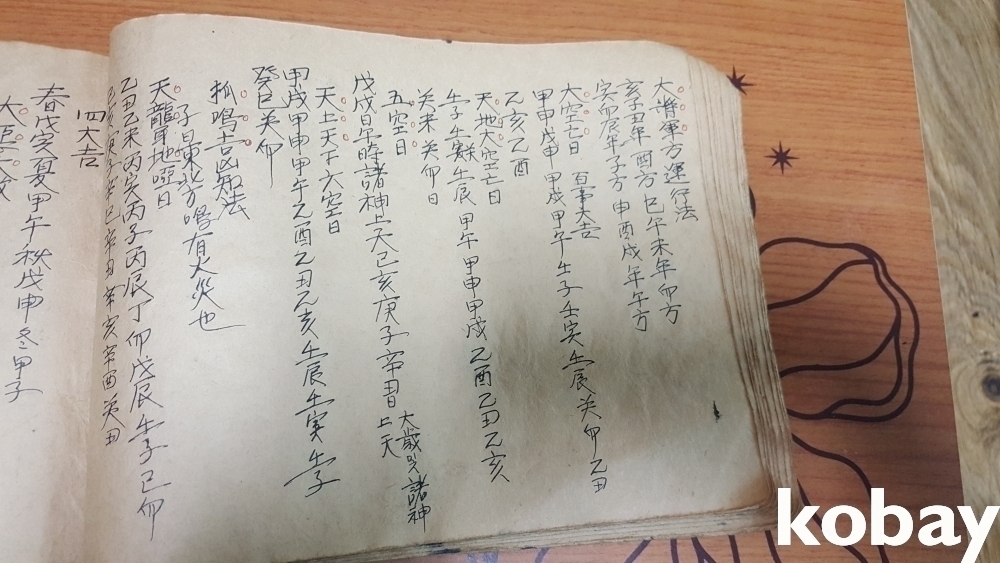 大將軍方運行法
亥子丑年酉方 巳午未年卯方
寅卯辰年子方 申酉戌年午方
大空亡日 百事大吉
甲申戌申 甲戌甲午 壬子 壬寅 壬辰 癸卯 乙丑
乙亥乙酉
天地大空亡日
壬子壬寅 壬辰 甲午 甲申 甲戌 乙酉 乙丑 乙亥
癸未 癸卯 日
五空日
戊戌日午時諸神上天己亥庚子辛丑日 大歲與諸神上天
天上天下大空日
甲戌甲申甲午乙酉乙丑乙亥壬辰壬寅壬子
癸巳癸卯
狐鳴吉凶知法
子日東北方鳴有火災也
天聾地啞日
乙丑乙未丙寅丙子丙辰丁卯戊辰壬子己卯
四大吉
春戊寅夏甲午秋戊申冬甲子
kobay